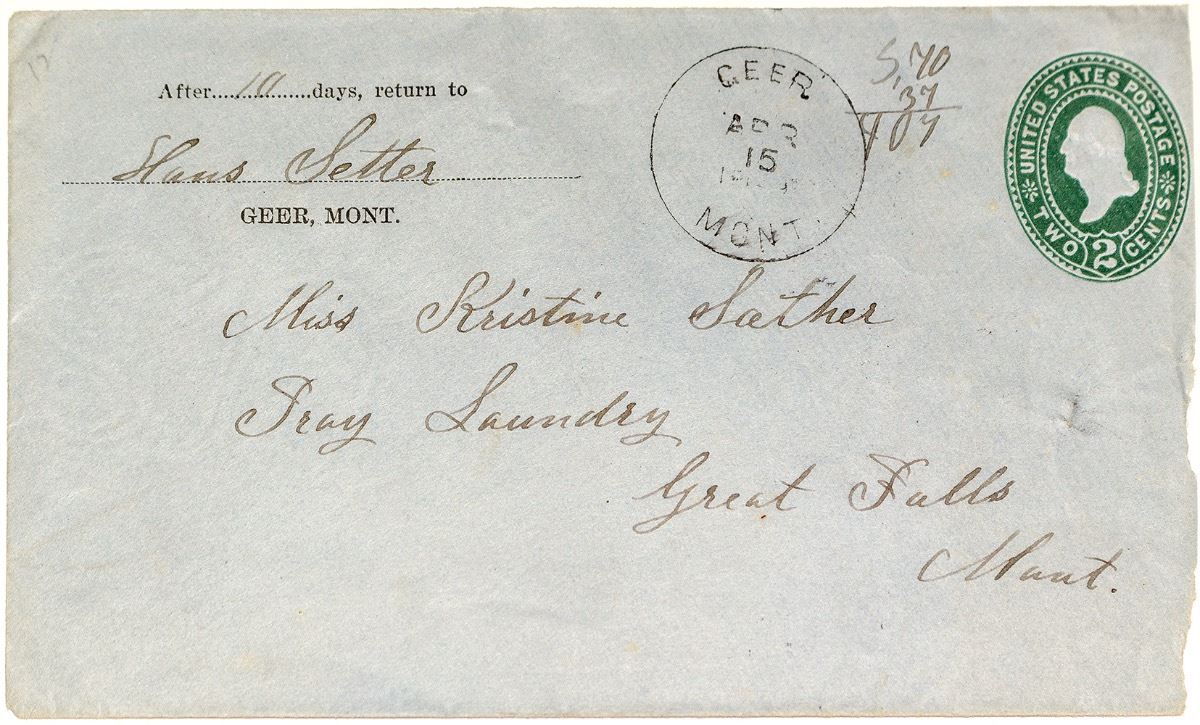 After....10....days, return to
Hans Setter
GEER, MONT.
GEER
APR
15
MONT.
5,70
37
UNITED STATES POSTAGE
TWO 2 CENTS
Miss Kristine Sæther
Tray Laundry
Great Falls
Mont.